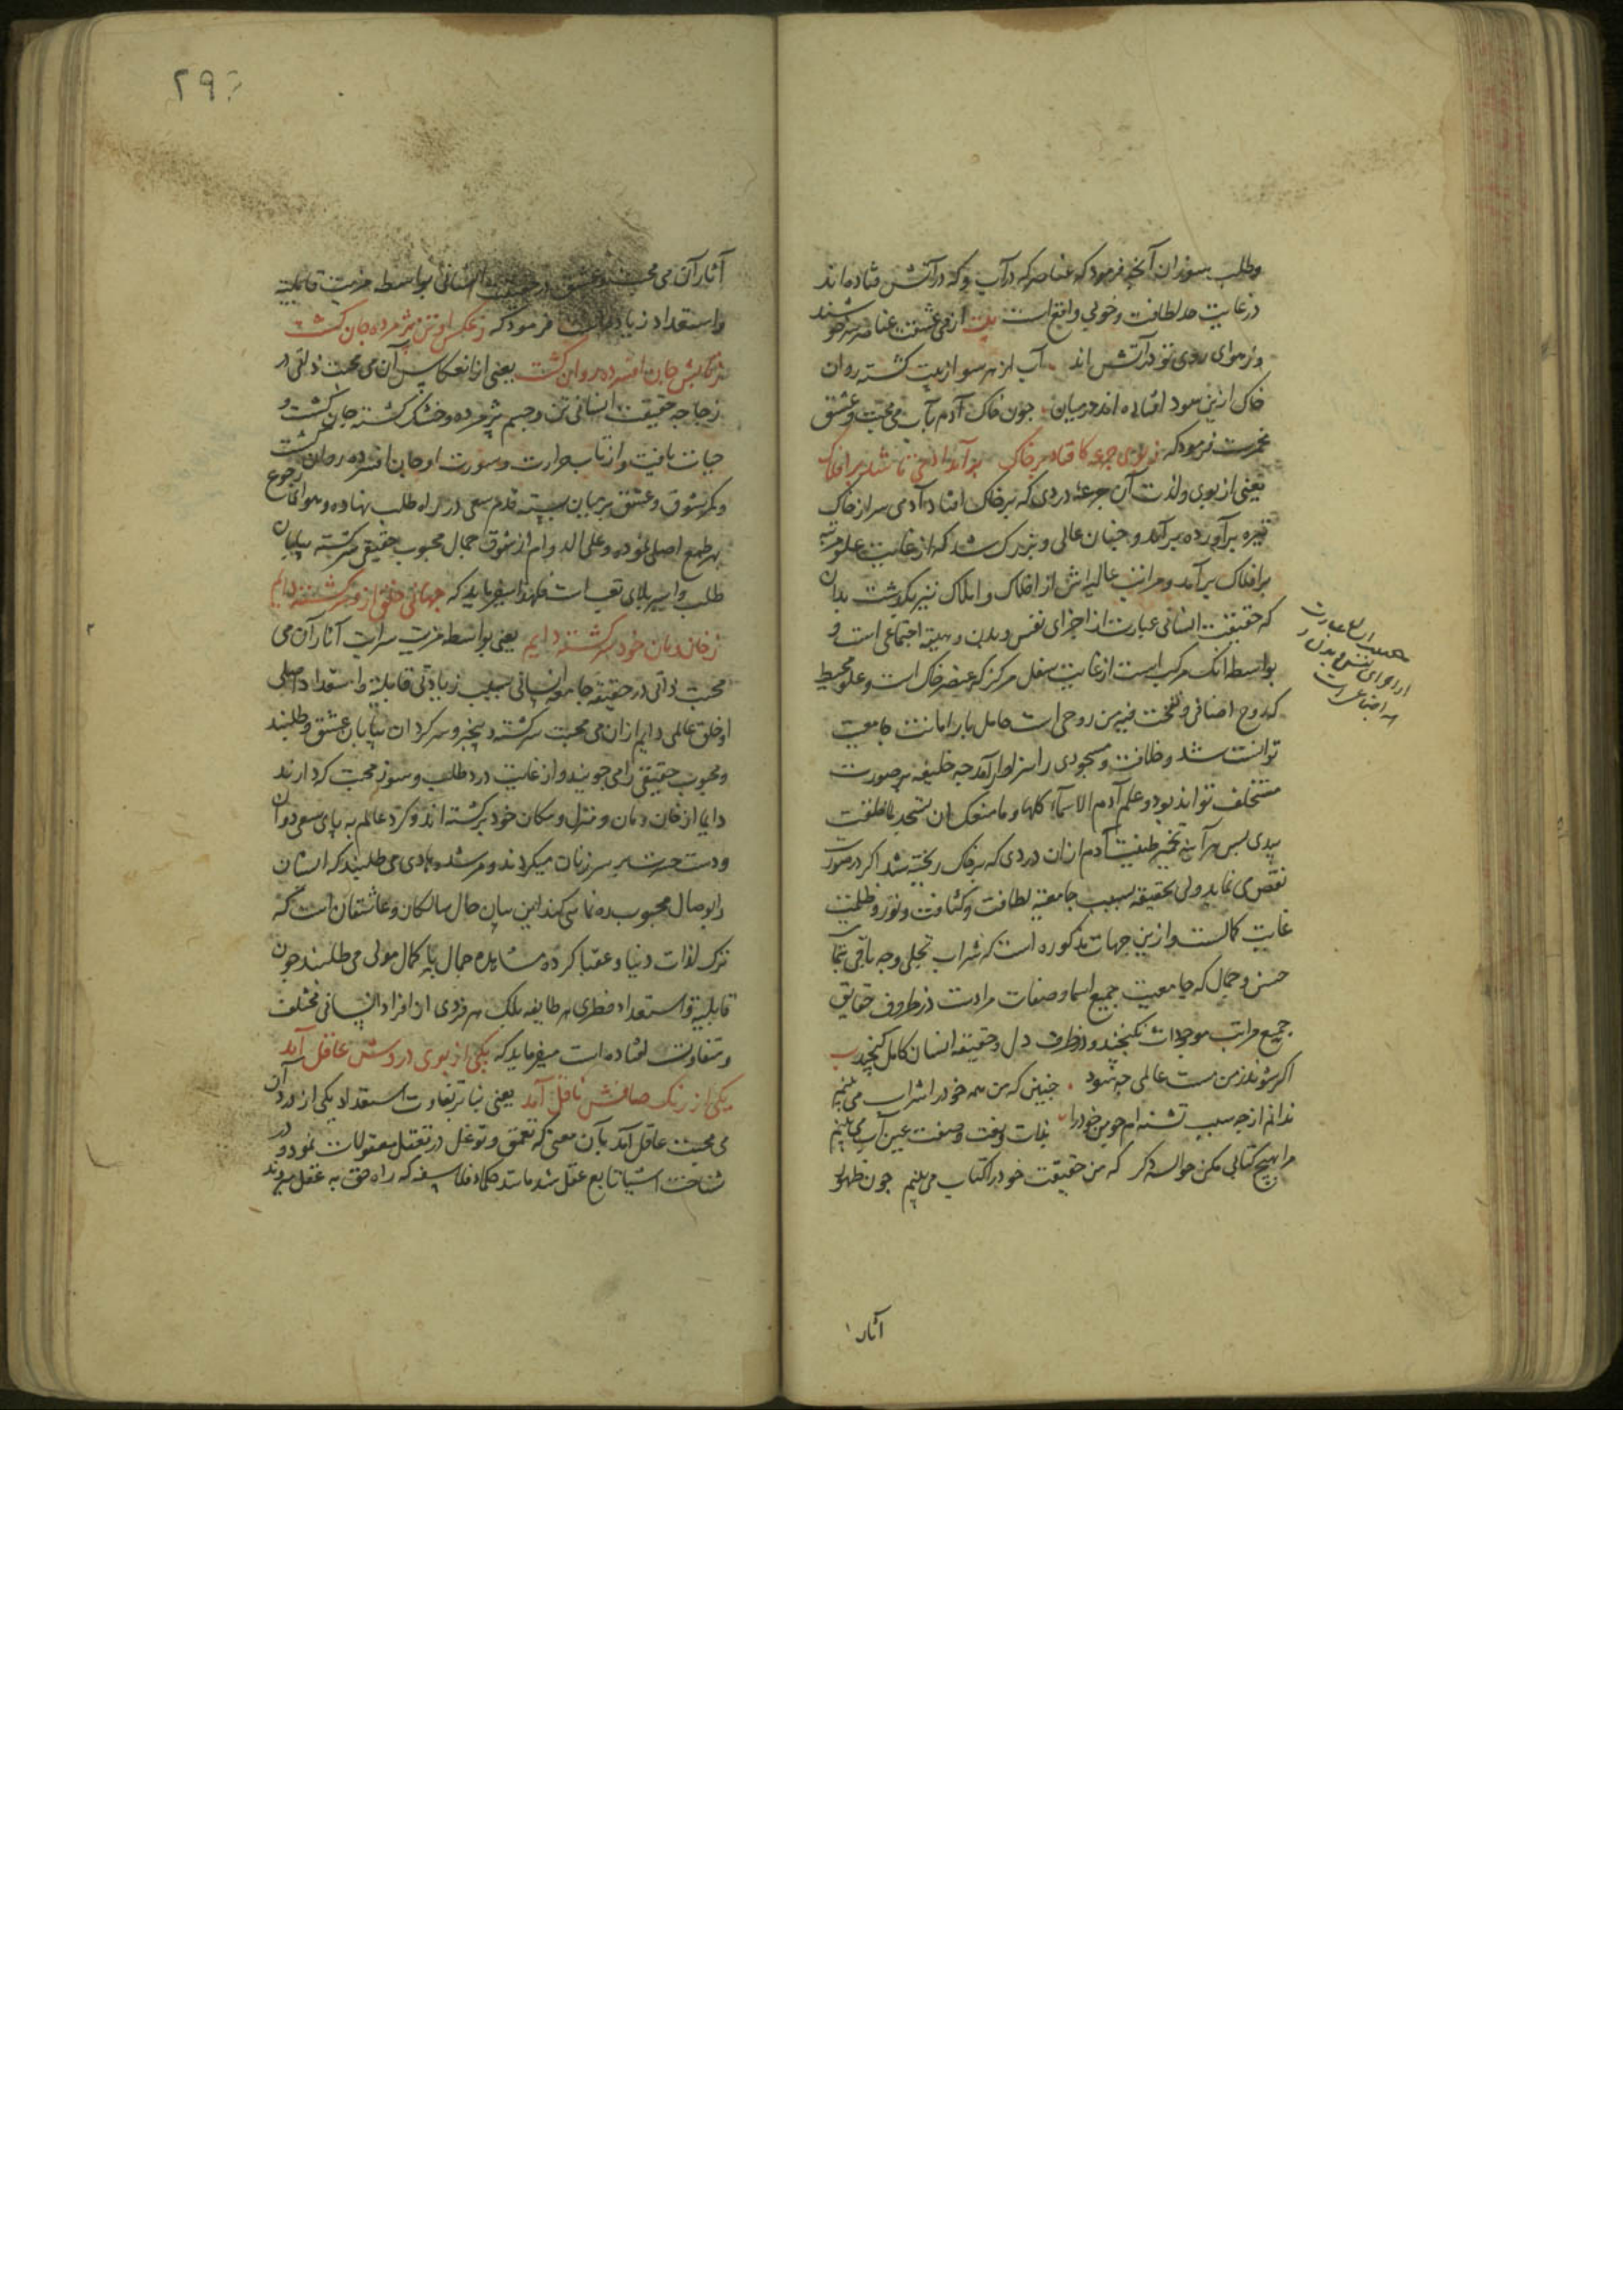 وطلب سوزان آنچه فرمود که عناصر که در آب و که در آتش فتاده اند
در غایت حد لطافت وخوبی واقع است بیت از می عشقت عناصر سرخوشند
وز هوای روی تو در آتش اند آب از هر سو از پیت کشته روان
خاک ازین سود افتاده اندر میان چون خاک آدم بآب می محبت وعشق
مخمرست فرمود که ز بوی جرعه کافتاد بر خاک برآمد آدمی تا شد بر افلاک
یعنی از بوی ولذت آن جرعه دردی که بر خاک افتاد آدمی سر از خاک
تیره برآورده برآمد و چنان عالی و بزرک شد که از غایت علو مرتبه
بر افلاک برآمد ومراتب عالیه اش از افلاک واملاک نیز بکذشت بدان
که حقیقت انسانی عبارت از اجزای نفس وبدن وهیئة اجتماعی است و
بواسطه انک مرکب است از غایت سفل مرکز که عنصر خاک است وعلو محیط
که روح اضافی ونفخت فیه من روحی است حامل بار امانت جامعیت
توانست شد وخلافت ومسجودی را سزاوار آمد چه خلیفه بر صورت
مستخلف تواند بود وعلم آدم الاسماء کلها وما منعک ان تسجد لما خلقت
بیدی پس هر آینه تخمیر طینت آدم از ان دردی که بر خاک ریخته شد اکر در صورت
نقص می نماید ولی بحقیقه بسبب جامعیة لطافت وکثافت ونور وظلمت
غایت کمالست وازین جهات مذکوره است که شراب تجلی وجه باقی بتمام
حسن وجمال که جامعیت جمیع اسما وصفات مرادست در ظروف حقایق
جمیع مراتب موجودات نکنجید ودر ظرف دل وحقیقه انسان کامل کنجید
اکر شوند ز من مست عالمی چه شود چنین که من همه خود را شراب می بینم
ندانم از چه سبب تشنه ام چون خود را بذات وصفت عین آب می بینم
مرا بهیچ کتابی مکن حواله دکر که من حقیقت خود را کتاب می بینم چون ظهور
آثار
آثار آن می محبت وعشق در حقیقت انسانی بواسطه مزیت قابلیة
واستعداد زیاده است فرمود که ز عکس او تن پژمرده جان کشت
ز تابش جان افسرده روان کشت یعنی از انعکاس آن می محبت ذاتی در
زجاجه حقیقت انسانی تن وجسم پژمرده وخشک کشته جان کشت و
حیات یافت واز تاب حرارت وسورت او جان افسرده روان کشت
وکمر شوق وعشق بر میان بسته قدم سعی در راه طلب نهاده وهوای رجوع
بمرجع اصلی نموده وعلی الدوام از شوق جمال محبوب حقیقی سرکشته بیابان
طلب واسیر بلای تعب است فلهذا میفرماید که جهانی خلق ازو سرکشته دایم
ز خان ومان خود برکشته دایم یعنی بواسطه مزیت سرایت آثار آن می
محبت ذاتی در حقیقه جامعه انسانی بسبب زیادتی قابلیة واستعداد اصلی
او خلق عالمی دایم از ان می محبت سرکشته وبیخبر وسرکردان بیابان عشق وطلبند
ومحبوب حقیقی را می جویند واز غایت درد طلب وسوز محبت که دارند
دایما از خان ومان ومنزل ومکان خود برکشته اند وکرد عالم به پای سعی دوان
ودست حسرت بر سر زنان میکردند ومرشد وهادی می طلبند که ایشان
را بوصال محبوب ره نمایی کند این بیان حال سالکان وعاشقان است که
ترک لذات دنیا وعقبا کرده مشاهده جمال با کمال مولی می طلبند چون
قابلیة واستعداد فطری هر طایفه بلک هر فردی از افراد انسانی مختلف
ومتفاوت افتاده است میفرماید که یکی از بوی دردش عاقل آمد
یکی از رنک صافش ناقل آمد یعنی بنا بر تفاوت استعداد یکی از درد آن
می محبت عاقل آمد بآن معنی که تعمق وتوغل در تعقل معقولات نمود ودر
شناخت اشیا تابع عقل شد مانند حکما وفلاسفه که راه حق به عقل میروند